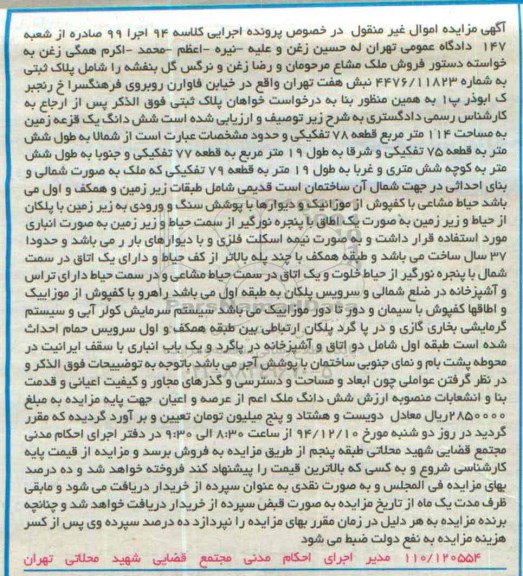 آگهی مزایده اموال غیر منقول در خصوص پرونده اجرایی کلاسه ۹۴ اجرا ۹۹ صادره از شعبه
۱۴۷ دادگاه عمومی تهران له حسین زغن و علیه -نیره -اعظم -محمد -اکرم همگی زغن به
خواسته دستور فروش ملک مشاع مرحومان و رضا زغن و نرگس گل بنفشه را شامل پلاک ثبتی
به شماره ۴۴۷۶/۱۱۸۲۳ نبش هفت تهران واقع در خیابن فاوارن روبروی فرهنگسرا خ رنجبر
ک ابوذر پ۱ به همین منظور بنا به درخواست خواهان پلاک ثبتی فوق الذکر پس از ارجاع به
کارشناس رسمی دادگستری به شرح زیر توصیف و ارزیابی شده است شش دانگ یک قزعه زمین
به مساحت ۱۱۴ متر مربع قطعه ۷۸ تفکیکی و حدود مشخصات عبارت است از شمالا به طول شش
متر به قطعه ۷۵ تفکیکی و شرقا به طول ۱۹ متر مربع به قطعه ۷۷ تفکیکی و جنوبا به طول شش
متر به کوچه شش متری و غربا به طول ۱۹ متر به قطعه ۷۹ تفکیکی که ملک به صورت شمالی و
بنای احداثی در جهت شمال آن ساختمان است قدیمی شامل طبقات زیر زمین و همکف و اول می
باشد حیاط مشاعی با کفپوش از موزائیک و دیوارها با پوشش سنگ و ورودی به زیر زمین با پلکان
از حیاط و زیر زمین به صورت یک اطاق با پنجره نورگیر از سمت حیاط و زیر زمین به صورت انباری
مورد استفاده قرار داشت و به صورت نیمه اسکلت فلزی و با دیوارهای بار ر می باشد و حدودا
۳۷ سال ساخت می باشد و طبقه همکف با چند پله بالاتر از کف حیاط و دارای یک اتاق در سمت
شمال با پنجره نورگیر از حیاط خلوت و یک اتاق در سمت حیاط مشاعی و در سمت حیاط دارای تراس
و آشپزخانه در ضلع شمالی و سرویس پلکان به طبقه اول می باشد راهرو با کفپوش از موزاییک
و اطاقها کفپوش با سیمان و دور تا دور موزاییک می باشد سیستم سرمایش کولر آبی و سیستم
گرمایشی بخاری گازی و در پا گرد پلکان ارتباطی بین طبقه همکف و اول سرویس حمام احداث
شده است طبقه اول شامل دو اتاق و آشپزخانه در پاگرد و یک باب انباری با سقف ایرانیت در
محوطه پشت بام و نمای جنوبی ساختمان با پوشش آجر می باشد باتوجه به توضیحات فوق الذکر و
در نظر گرفتن عواملی چون ابعاد و مساحت و دسترسی و گذرهای مجاور و کیفیت اعیانی و قدمت
بنا و انشعابات منصوبه ارزش شش دانگ ملک اعم از عرصه و اعیان جهت پایه مزایده به مبلغ
۲۸۵۰۰۰۰ریال معادل دویست و هشتاد و پنج میلیون تومان تعیین و بر آورد گردیده که مقرر
گردید در روز دو شنبه مورخ ۹۴/۱۲/۱۰ از ساعت ۸:۳۰ الی ۹:۳۰ در دفتر اجرای احکام مدنی
مجتمع قضایی شهید محلاتی طبقه پنجم از طریق مزایده به فروش برسد و مزایده از قیمت پایه
کارشناسی شروع و به کسی که بالاترین قیمت را پیشنهاد کند فروخته خواهد شد و ده درصد
بهای مزایده فی المجلس و به صورت نقدی به عنوان سپرده از خریدار دریافت می شود و مابقی
ظرف مدت یک ماه از تاریخ مزایده به صورت قبض سپرده از خریدار دریافت خواهد شد و چنانچه
برنده مزایده به هر دلیل در زمان مقرر بهای مزایده را نپردازد ده درصد سپرده وی پس از کسر
هزینه مزایده به نفع دولت ضبط می شود
۱۱۰/۱۲۰۵۵۴ مدیر اجرای احکام مدنی مجتمع قضایی شهید محلاتی تهران